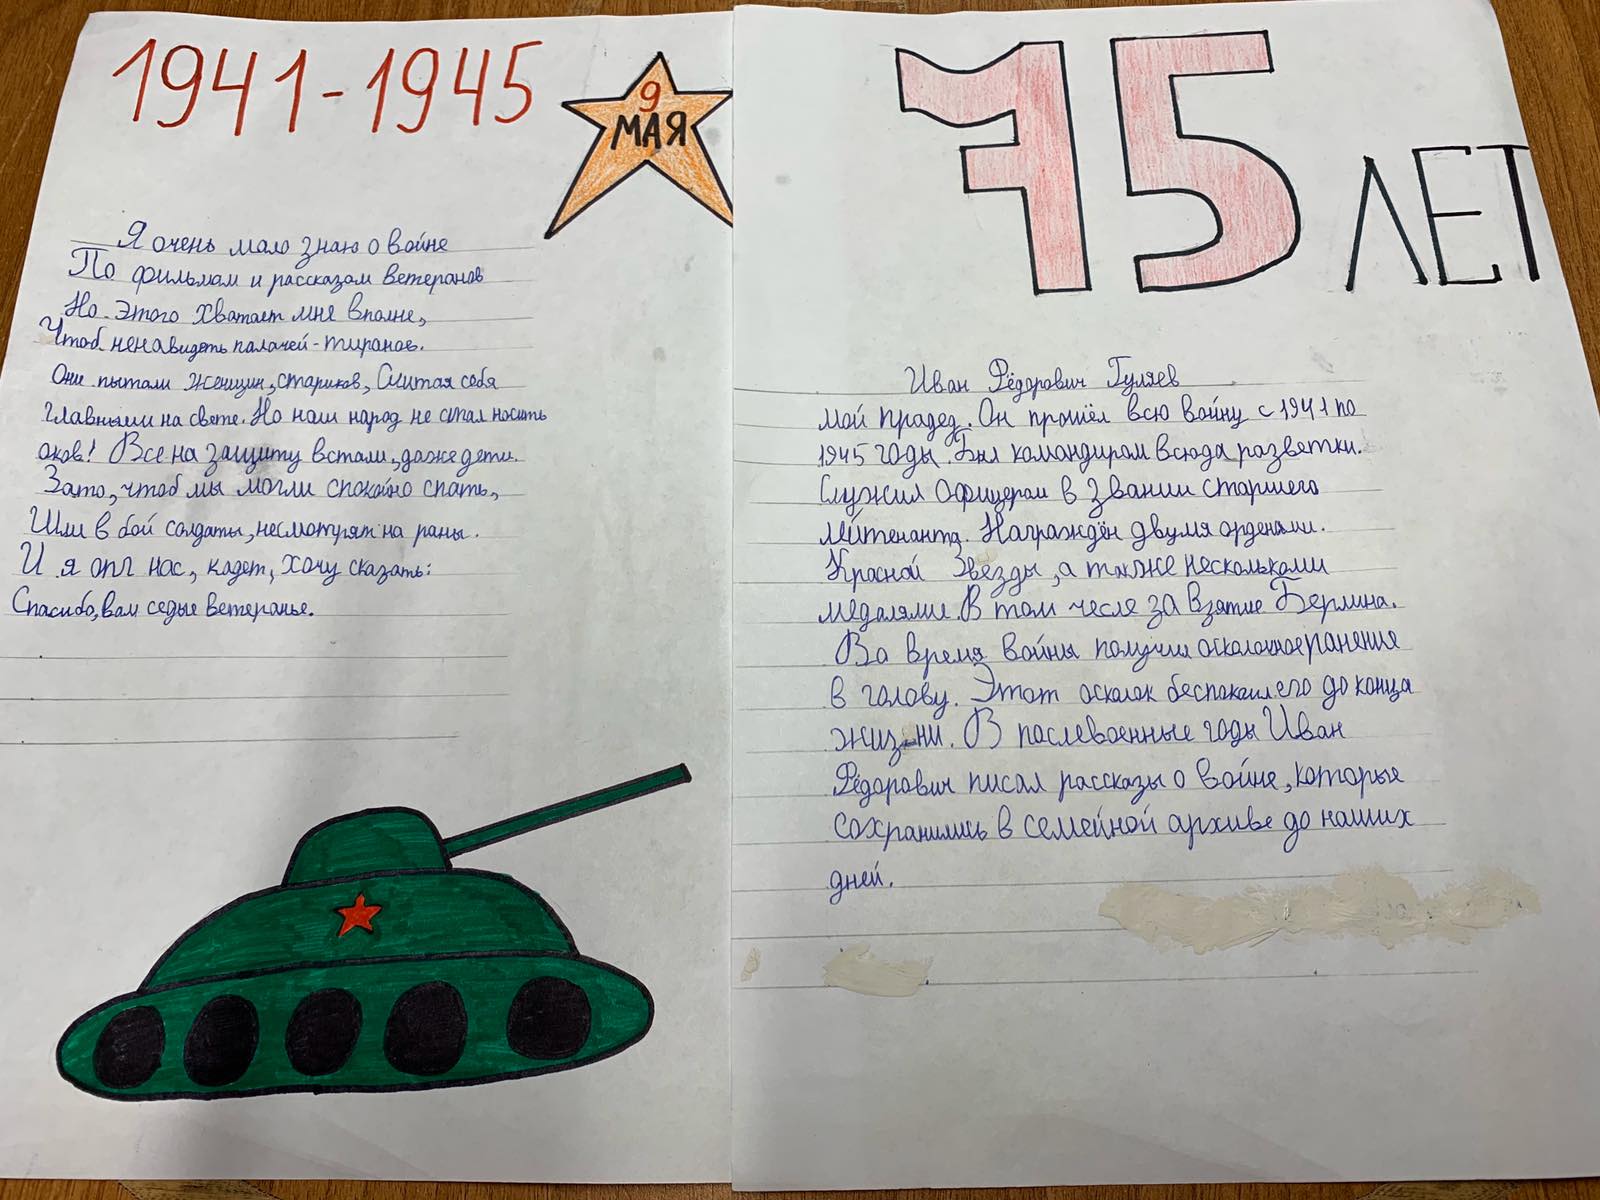 1941-1945
9
МАЯ
Я очень мало знаю о войне
По фильмам и рассказам ветеранов
Но этого хватает мне вполне,
Чтоб ненавидеть палачей-тиранов.
Они пытали женщин, стариков, Считая себя
главными на свете. Но наш народ не стал носить
оков! Все на защиту встали, даже дети.
Зато, чтоб мы могли спокойно спать,
Шли в бой солдаты, несмотрят на раны.
И я от нас, кадет, хочу сказать:
Спасибо, вам седые ветеранье.
75
ЛЕТ
Иван Фёдорович Гуляев
мой прадед. Он прошёл всю войну с 1941 по
1945 годы. Был командиром всюда разветки.
Служил офицером в звании старшего
лейтенанта. Награждён двумя орденами.
Красной Звезды, а также несколькими
медалями. В том чесле за Взятие Берлина.
Во время войны получил осколочное ранение
в голову. Этот осколок беспокоил его до конца
жизни. В послевоенные годы Иван
Фёдорович писал рассказы о войне, которые
сохранились в семейной архиве до наших
дней.